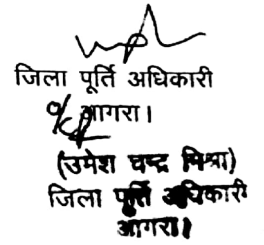 जिला पूर्ति अधिकारी
आगरा।
(उमेश चन्द्र मिश्रा)
जिला पूर्ति अधिकारी
आगरा।